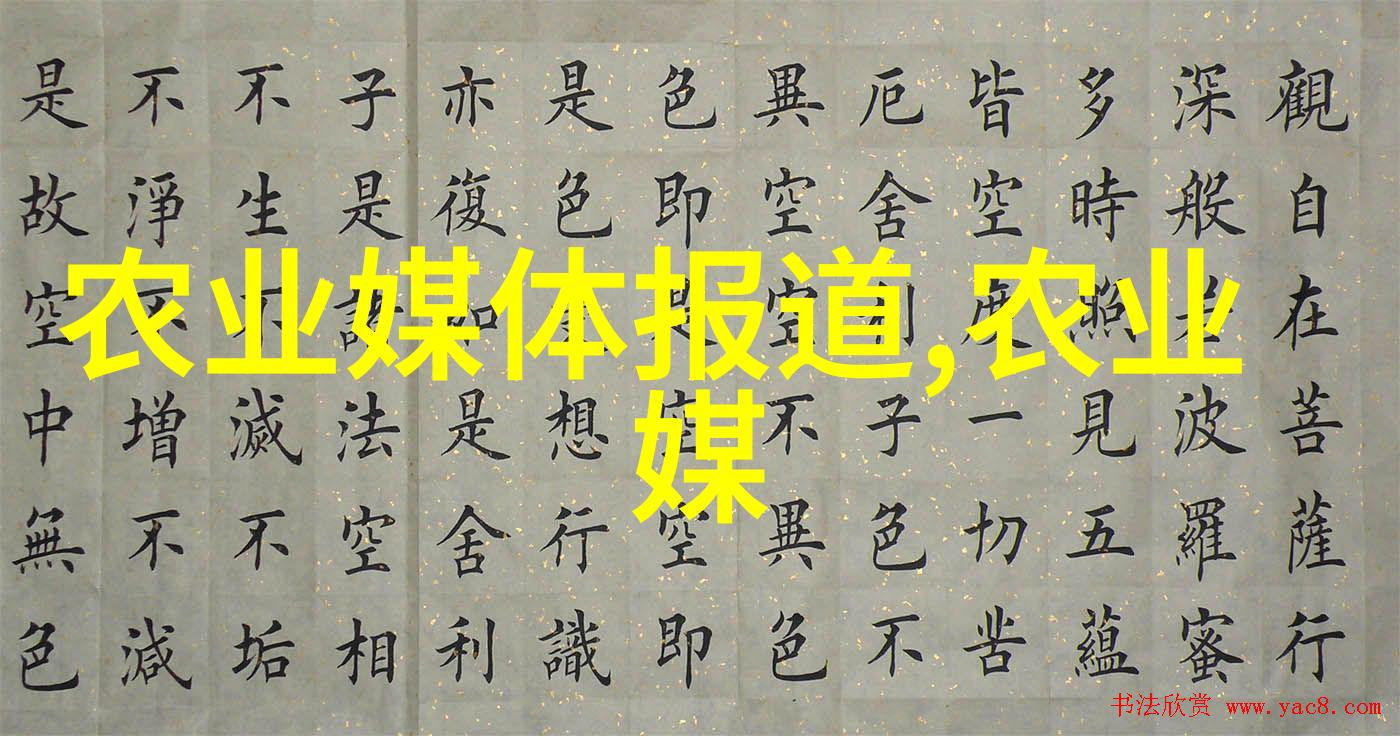 農业媒体报道,农业
媒
觀自在菩薩行
深般若波羅蜜
多時照見五蘊
皆空度一切苦
厄舍利子色不
異空空不異色
色即是空空即
是色想行識
亦復如是舍利
子是諸法空相
不生不滅不垢
不淨不增不減
是故空中無色
书法欣赏 www.yac8.com